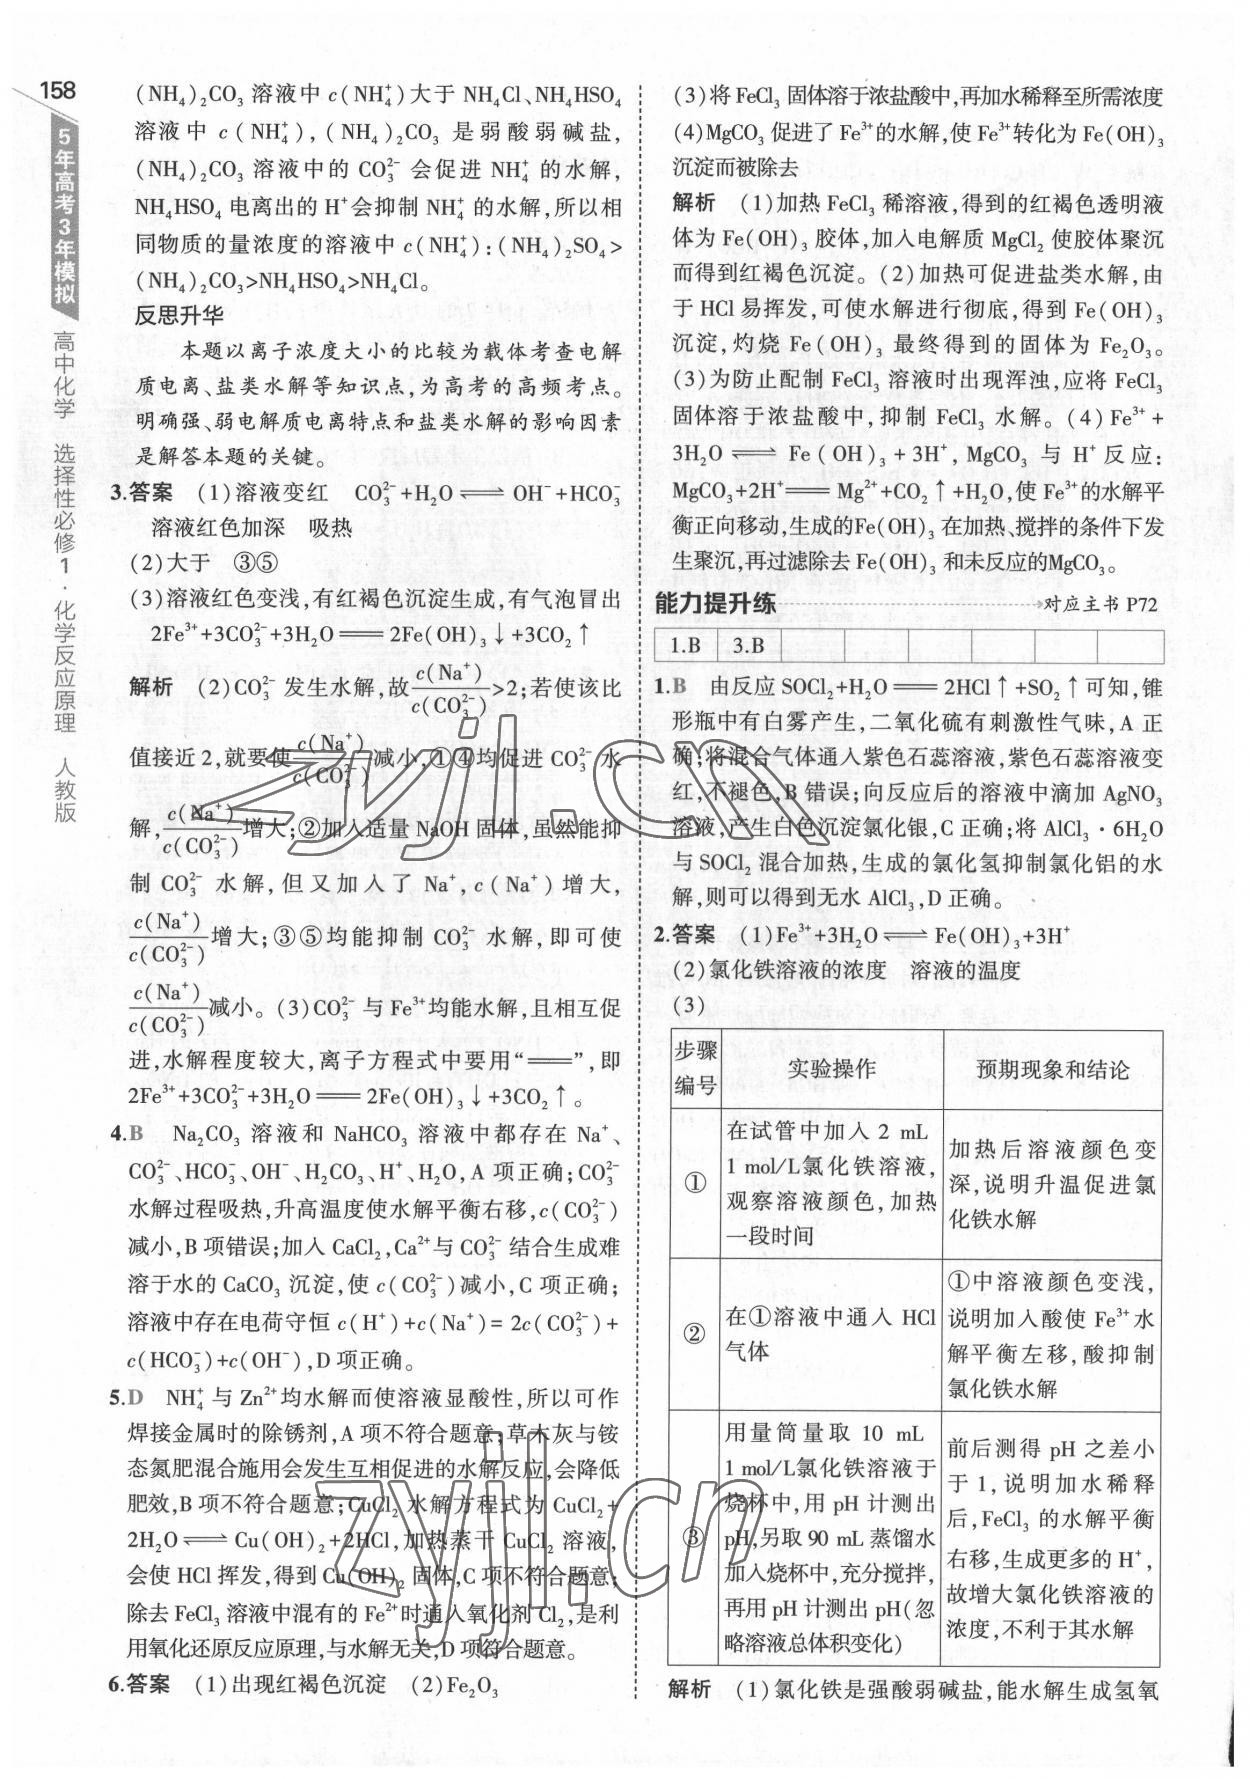 158
5年高考3年模拟
高中化学 选择性必修1·化学反应原理 人教版
(NH₄)₂CO₃ 溶液中 c(NH₄⁺)大于 NH₄Cl、NH₄HSO₄
溶液中 c(NH₄⁺),(NH₄)₂CO₃ 是弱酸弱碱盐,
(NH₄)₂CO₃ 溶液中的 CO₃²⁻ 会促进 NH₄⁺ 的水解,
NH₄HSO₄ 电离出的 H⁺会抑制 NH₄⁺ 的水解,所以相
同物质的量浓度的溶液中 c(NH₄⁺):(NH₄)₂SO₄>
(NH₄)₂CO₃>NH₄HSO₄>NH₄Cl。
反思升华
本题以离子浓度大小的比较为载体考查电解
质电离、盐类水解等知识点,为高考的高频考点。
明确强、弱电解质电离特点和盐类水解的影响因素
是解答本题的关键。
3.答案 (1)溶液变红 CO₃²⁻+H₂O⇌OH⁻+HCO₃⁻
溶液红色加深 吸热
(2)大于 ③⑤
(3)溶液红色变浅,有红褐色沉淀生成,有气泡冒出
2Fe³⁺+3CO₃²⁻+3H₂O══2Fe(OH)₃↓+3CO₂↑
解析 (2)CO₃²⁻ 发生水解,故c(Na⁺)/c(CO₃²⁻)>2;若使该比
值接近2,就要使c(Na⁺)/c(CO₃²⁻)减小,①④均促进 CO₃²⁻ 水
解,c(Na⁺)/c(CO₃²⁻)增大;②加入适量 NaOH 固体,虽然能抑
制 CO₃²⁻ 水解,但又加入了 Na⁺,c(Na⁺)增大,
c(Na⁺)/c(CO₃²⁻)增大;③⑤均能抑制 CO₃²⁻ 水解,即可使
c(Na⁺)/c(CO₃²⁻)减小。(3)CO₃²⁻ 与 Fe³⁺均能水解,且相互促
进,水解程度较大,离子方程式中要用“══”,即
2Fe³⁺+3CO₃²⁻+3H₂O══2Fe(OH)₃↓+3CO₂↑。
4.B Na₂CO₃ 溶液和 NaHCO₃ 溶液中都存在 Na⁺、
CO₃²⁻、HCO₃⁻、OH⁻、H₂CO₃、H⁺、H₂O,A 项正确;CO₃²⁻
水解过程吸热,升高温度使水解平衡右移,c(CO₃²⁻)
减小,B 项错误;加入 CaCl₂,Ca²⁺与 CO₃²⁻ 结合生成难
溶于水的 CaCO₃ 沉淀,使 c(CO₃²⁻)减小,C 项正确;
溶液中存在电荷守恒 c(H⁺)+c(Na⁺)=2c(CO₃²⁻)+
c(HCO₃⁻)+c(OH⁻),D 项正确。
5.D NH₄⁺ 与 Zn²⁺均水解而使溶液显酸性,所以可作
焊接金属时的除锈剂,A 项不符合题意;草木灰与铵
态氮肥混合施用会发生互相促进的水解反应,会降低
肥效,B 项不符合题意;CuCl₂ 水解方程式为 CuCl₂+
2H₂O⇌Cu(OH)₂+2HCl,加热蒸干 CuCl₂ 溶液,
会使 HCl 挥发,得到 Cu(OH)₂ 固体,C 项不符合题意;
除去 FeCl₃ 溶液中混有的 Fe²⁺时通入氧化剂 Cl₂,是利
用氧化还原反应原理,与水解无关,D 项符合题意。
6.答案 (1)出现红褐色沉淀 (2)Fe₂O₃
(3)将 FeCl₃ 固体溶于浓盐酸中,再加水稀释至所需浓度
(4)MgCO₃ 促进了 Fe³⁺的水解,使 Fe³⁺转化为 Fe(OH)₃
沉淀而被除去
解析 (1)加热 FeCl₃ 稀溶液,得到的红褐色透明液
体为 Fe(OH)₃ 胶体,加入电解质 MgCl₂ 使胶体聚沉
而得到红褐色沉淀。(2)加热可促进盐类水解,由
于 HCl 易挥发,可使水解进行彻底,得到 Fe(OH)₃
沉淀,灼烧 Fe(OH)₃ 最终得到的固体为 Fe₂O₃。
(3)为防止配制 FeCl₃ 溶液时出现浑浊,应将 FeCl₃
固体溶于浓盐酸中,抑制 FeCl₃ 水解。(4)Fe³⁺+
3H₂O⇌Fe(OH)₃+3H⁺,MgCO₃ 与 H⁺反应:
MgCO₃+2H⁺══Mg²⁺+CO₂↑+H₂O,使 Fe³⁺的水解平
衡正向移动,生成的Fe(OH)₃ 在加热、搅拌的条件下发
生聚沉,再过滤除去 Fe(OH)₃ 和未反应的MgCO₃。
能力提升练 →对应主书 P72
1.B 3.B
1.B 由反应 SOCl₂+H₂O══2HCl↑+SO₂↑可知,锥
形瓶中有白雾产生,二氧化硫有刺激性气味,A 正
确;将混合气体通入紫色石蕊溶液,紫色石蕊溶液变
红,不褪色,B 错误;向反应后的溶液中滴加 AgNO₃
溶液,产生白色沉淀氯化银,C 正确;将 AlCl₃·6H₂O
与 SOCl₂ 混合加热,生成的氯化氢抑制氯化铝的水
解,则可以得到无水 AlCl₃,D 正确。
2.答案 (1)Fe³⁺+3H₂O⇌Fe(OH)₃+3H⁺
(2)氯化铁溶液的浓度 溶液的温度
(3)
步骤
编号
实验操作
预期现象和结论
①
在试管中加入 2 mL
1 mol/L氯化铁溶液,
观察溶液颜色,加热
一段时间
加热后溶液颜色变
深,说明升温促进氯
化铁水解
②
在①溶液中通入 HCl
气体
①中溶液颜色变浅,
说明加入酸使 Fe³⁺水
解平衡左移,酸抑制
氯化铁水解
③
用量筒量取 10 mL
1 mol/L氯化铁溶液于
烧杯中,用 pH 计测出
pH,另取 90 mL 蒸馏水
加入烧杯中,充分搅拌,
再用 pH 计测出 pH(忽
略溶液总体积变化)
前后测得 pH 之差小
于 1,说明加水稀释
后,FeCl₃ 的水解平衡
右移,生成更多的 H⁺,
故增大氯化铁溶液的
浓度,不利于其水解
解析 (1)氯化铁是强酸弱碱盐,能水解生成氢氧
zyjl.cn
zyjl.cn